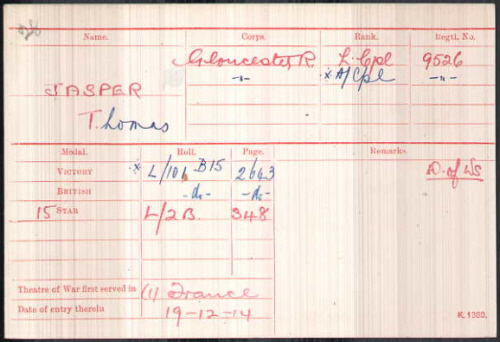 Name. Corps. Rank. Regtl. No.
Gloucester, R. L. Cpl 9526
-"- x A/Cpl -"-
JASPER
Thomas
Medal. Roll. Page. Remarks.
VICTORY x L/101 B15 2643 D. of Ws
BRITISH -do- -do-
15 STAR L/2B. 348
Theatre of War first served in (1) France
Date of entry therein 19-12-14
K. 1380.